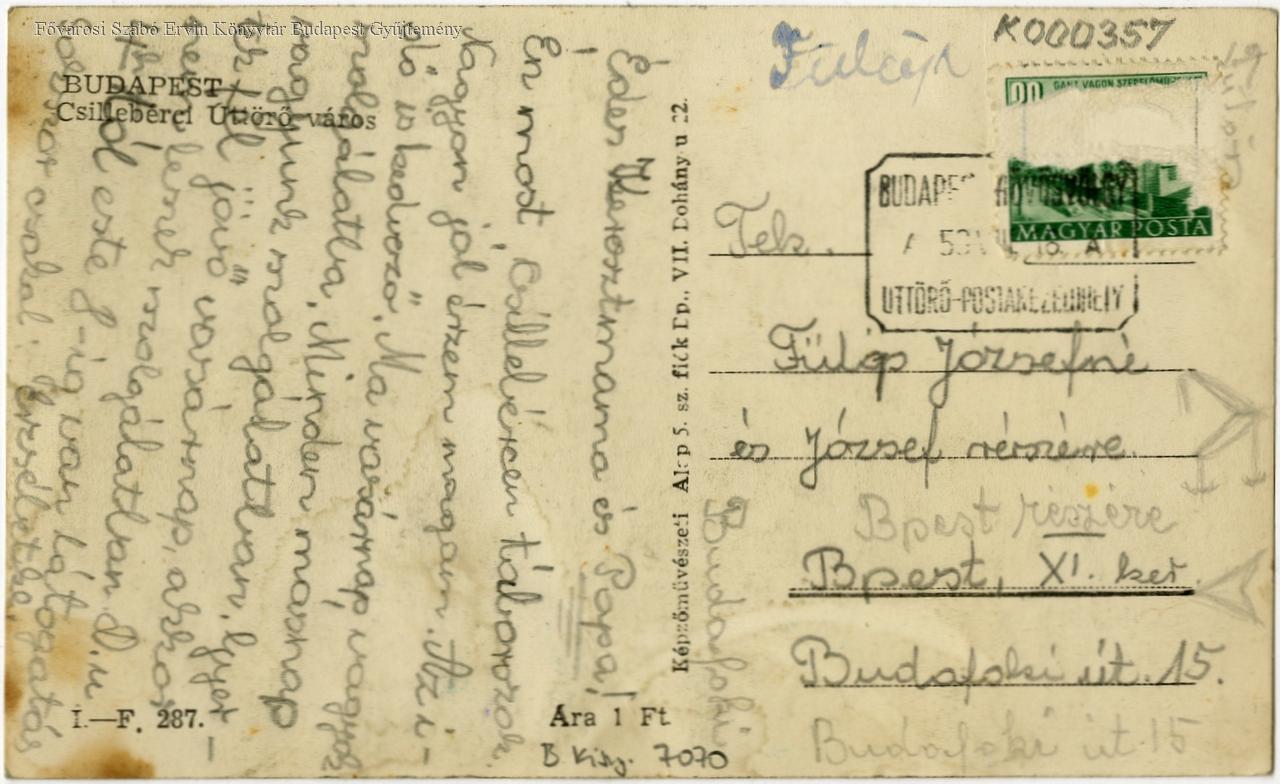 Fővárosi Szabó Ervin Könyvtár Budapest Gyűjtemény
K000357
BUDAPEST
Csillebérci Úttörő város
Édes Keresztmama és Papa!
Én most Csillebércen táborozok.
Nagyon jól érzem magam. Az i-
dő is kedvező. Ma vasárnap vagyok
szolgálatba. Minden másnap
vagyunk szolgálatban.
jövő vasárnap, akkor
nem leszek szolgálatban d.u.
este 8-ig van látogatás
sokszor csókol: Erzsébetke
I.—F. 287.
Ára 1 Ft
B Kisg. 7070
Képzőművészeti Alap 5. sz. fiók Bp., VII. Dohány u 22.
GANZ VAGON
MAGYAR POSTA
BUDAPEST HŰVÖSVÖLGY
ÚTTÖRŐ-POSTAKEZELŐHELY
Tek.
Fülöp Józsefné
és József részére
Bpest részére
Bpest, XI. ker.
Budafoki út. 15.
Budafoki út 15
Budafoki